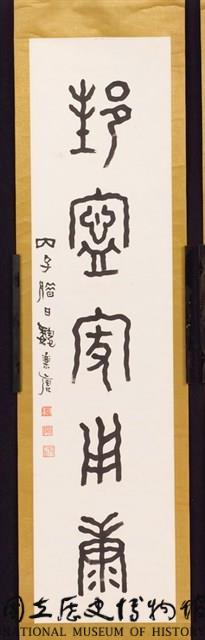 邦寧家用康
丙子臘日魏
國立歷史博物館
NATIONAL MUSEUM OF HISTORY